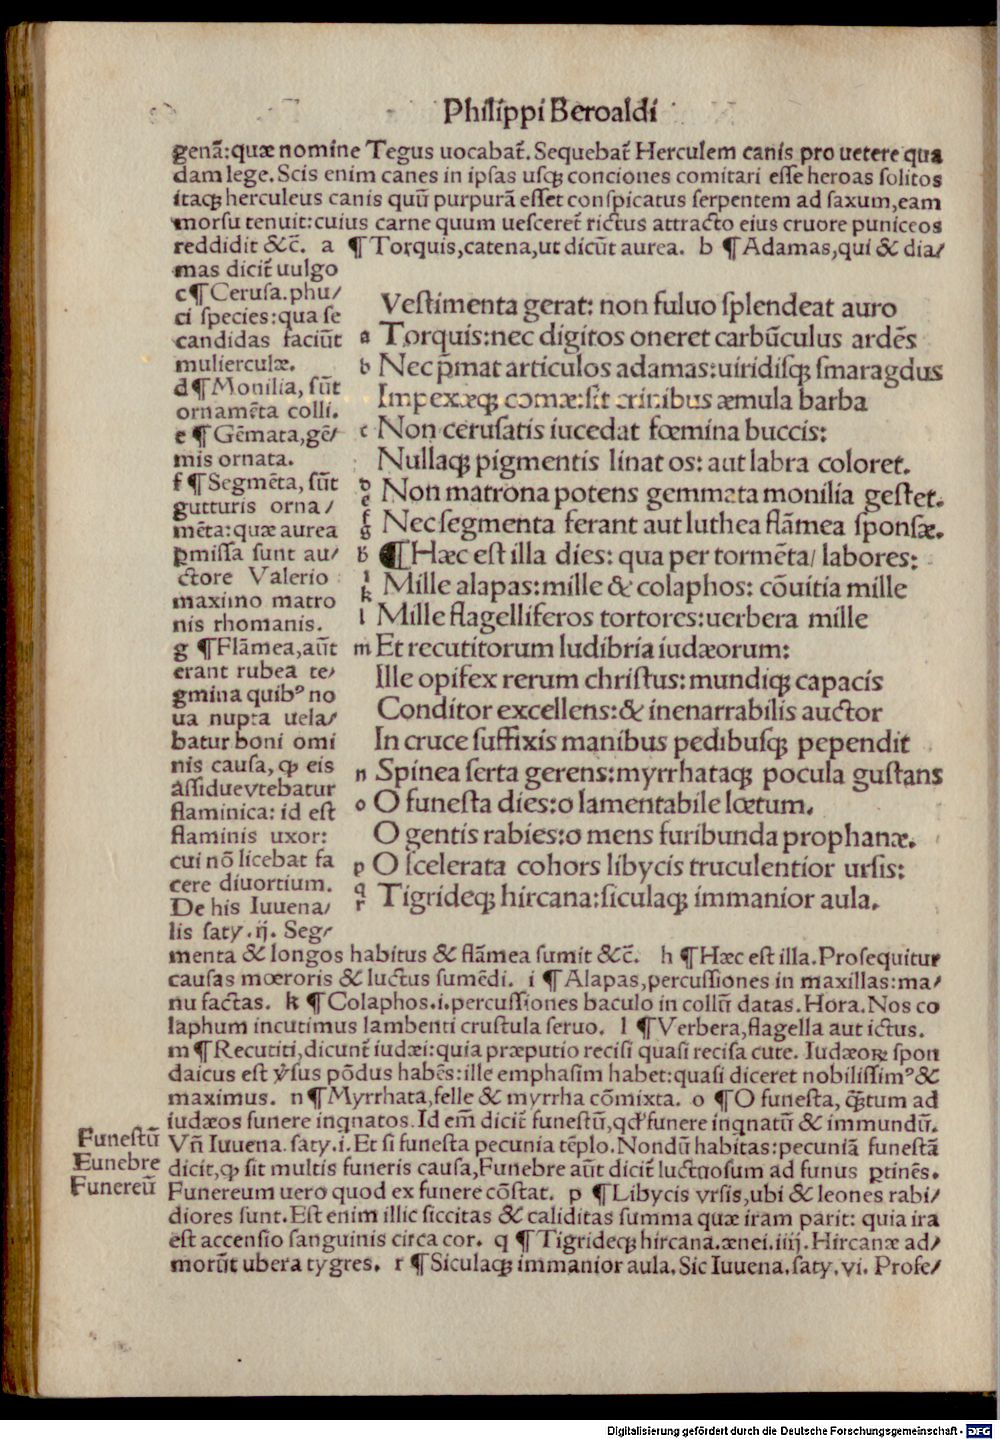 Philippi Beroaldi
genā:quæ nomine Tegus uocabat̄. Sequebat̄ Herculem canis pro uetere qua
dam lege. Scis enim canes in ipsas usqꝫ conciones comitari esse heroas solitos
itaqꝫ herculeus canis quū purpurā esset conspicatus serpentem ad saxum,eam
morsu tenuit:cuius carne quum uesceret̄ rictus attracto eius cruore puniceos
reddidit &c̄. a ¶ Torquis,catena,ut dicūt aurea. b ¶ Adamas,qui & dia/
mas dicit̄ uulgo
c¶ Cerusa.phu/
ci species:qua se
candidas faciūt
mulierculæ.
d¶Monilia, sūt
ornamēta colli.
e ¶ Gēmata,gē/
mis ornata.
f ¶Segmēta, sūt
gutturis orna/
mēta:quæ aurea
ꝑmissa sunt au/
ctore Valerio
maximo matro
nis rhomanis.
g ¶Flāmea,aūt
erant rubea te/
gmina quibꝰ no
ua nupta uela/
batur boni omi
nis causa, ꝙ eis
assidue vtebatur
flaminica: id est
flaminis uxor:
cui nō licebat fa
cere diuortium.
De his Iuuena/
lis saty.ij. Seg/
Vestimenta gerat: non fuluo splendeat auro
a Torquis:nec digitos oneret carbūculus ardēs
b Nec p̄mat articulos adamas:uiridisqꝫ smaragdus
Impexæqꝫ comæ:sit crinibus æmula barba
c Non cerusatis iucedat fœmina buccis:
Nullaqꝫ pigmentis linat os: aut labra coloret.
d e Non matrona potens gemmata monilia gestet.
f g Nec segmenta ferant aut luthea flāmea sponsæ.
h ¶Hæc est illa dies: qua per tormēta/ labores:
i k Mille alapas:mille & colaphos: cōuitia mille
l Mille flagelliferos tortores:uerbera mille
m Et recutitorum ludibria iudæorum:
Ille opifex rerum christus:mundiqꝫ capacis
Conditor excellens:& inenarrabilis auctor
In cruce suffixis manibus pedibusqꝫ pependit
n Spinea serta gerens:myrrhataqꝫ pocula gustans
o O funesta dies:o lamentabile lœtum.
O gentis rabies:o mens furibunda prophanæ.
p O scelerata cohors libycis truculentior ursis:
q r Tigrideqꝫ hircana:siculaqꝫ immanior aula.
menta & longos habitus & flāmea sumit &c̄. h ¶Hæc est illa.Prosequitur
causas mœroris & luctus sumēdi. i ¶ Alapas,percussiones in maxillas:ma/
nu factas. k ¶ Colaphos.i.percussiones baculo in collū datas. Hora. Nos co
laphum incutimus lambenti crustula seruo. l ¶ Verbera,flagella aut ictus.
m ¶ Recutiti,dicunt̄ iudæi:quia præputio recisi quasi recisa cute. Iudæoꝝ spon
daicus est v̓sus pōdus habēs:ille emphasim habet:quasi diceret nobilissimꝰ &
maximus. n ¶ Myrrhata,felle & myrrha cōmixta. o ¶ O funesta, q̄tum ad
iudæos funere inqnatos. Id em̄ dicit̄ funestū,qd̓ funere inqnatū & immundū.
Vn̄ Iuuena. saty.i. Et si funesta pecunia tēplo. Nondū habitas:pecuniā funestā
dicit,ꝙ sit multis funeris causa,Funebre aūt dicit̄ luctuosum ad funus ꝑtinēs.
Funereum uero quod ex funere cōstat. p ¶Libycis vrsis,ubi & leones rabi/
diores sunt.Est enim illic siccitas & caliditas summa quæ iram parit: quia ira
est accensio sanguinis circa cor. q ¶ Tigrideqꝫ hircana.ænei.iiij. Hircanæ ad/
morūt ubera tygres. r ¶ Siculaqꝫ immanior aula. Sic Iuuena. saty.vi. Profe/
Funestū
Funebre
Funereū
Digitalisierung gefördert durch die Deutsche Forschungsgemeinschaft - DFG